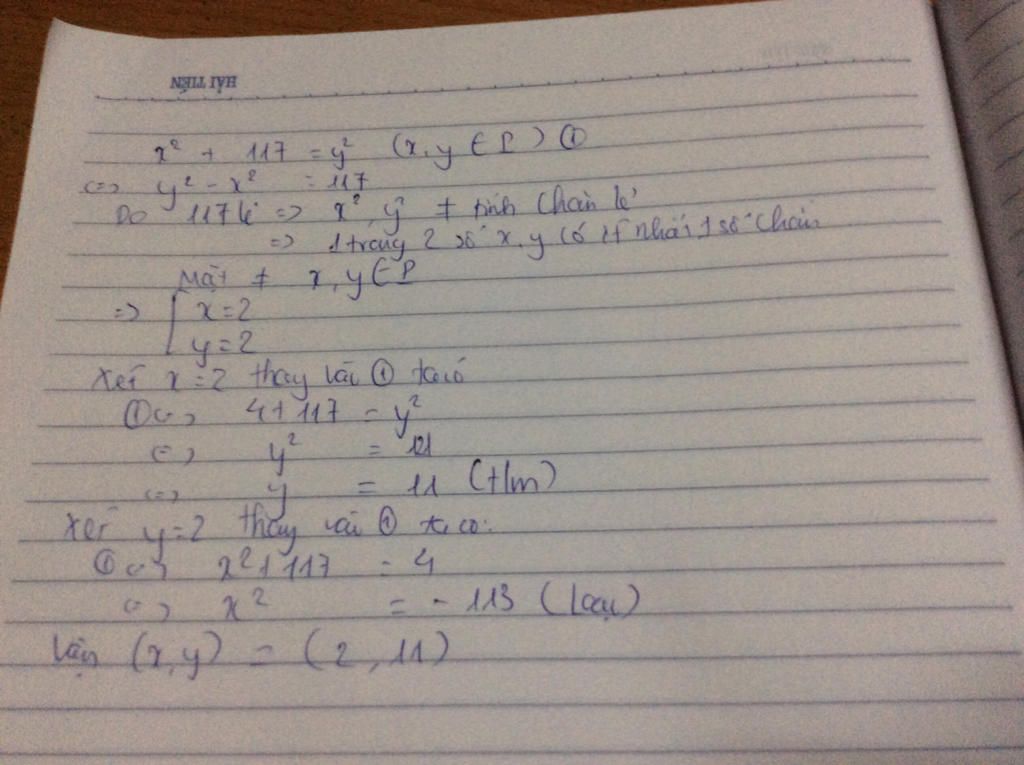 HẢI TIẾN
x² + 117 = y² (x, y ∈ P) ①
<=> y² - x² = 117
Do 117 lẻ => x², y² ≠ tính chẵn lẻ
=> 1 trong 2 số x, y có ít nhất 1 số chẵn
Mặt ≠ x, y ∈ P
=> [ x = 2
y = 2
Xét x = 2 thay vào ① ta có
① <=> 4 + 117 = y²
<=> y² = 121
<=> y = 11 (t/m)
Xét y = 2 thay vào ① ta có:
① <=> x² + 117 = 4
<=> x² = - 113 (loại)
Vậy (x, y) = (2, 11)